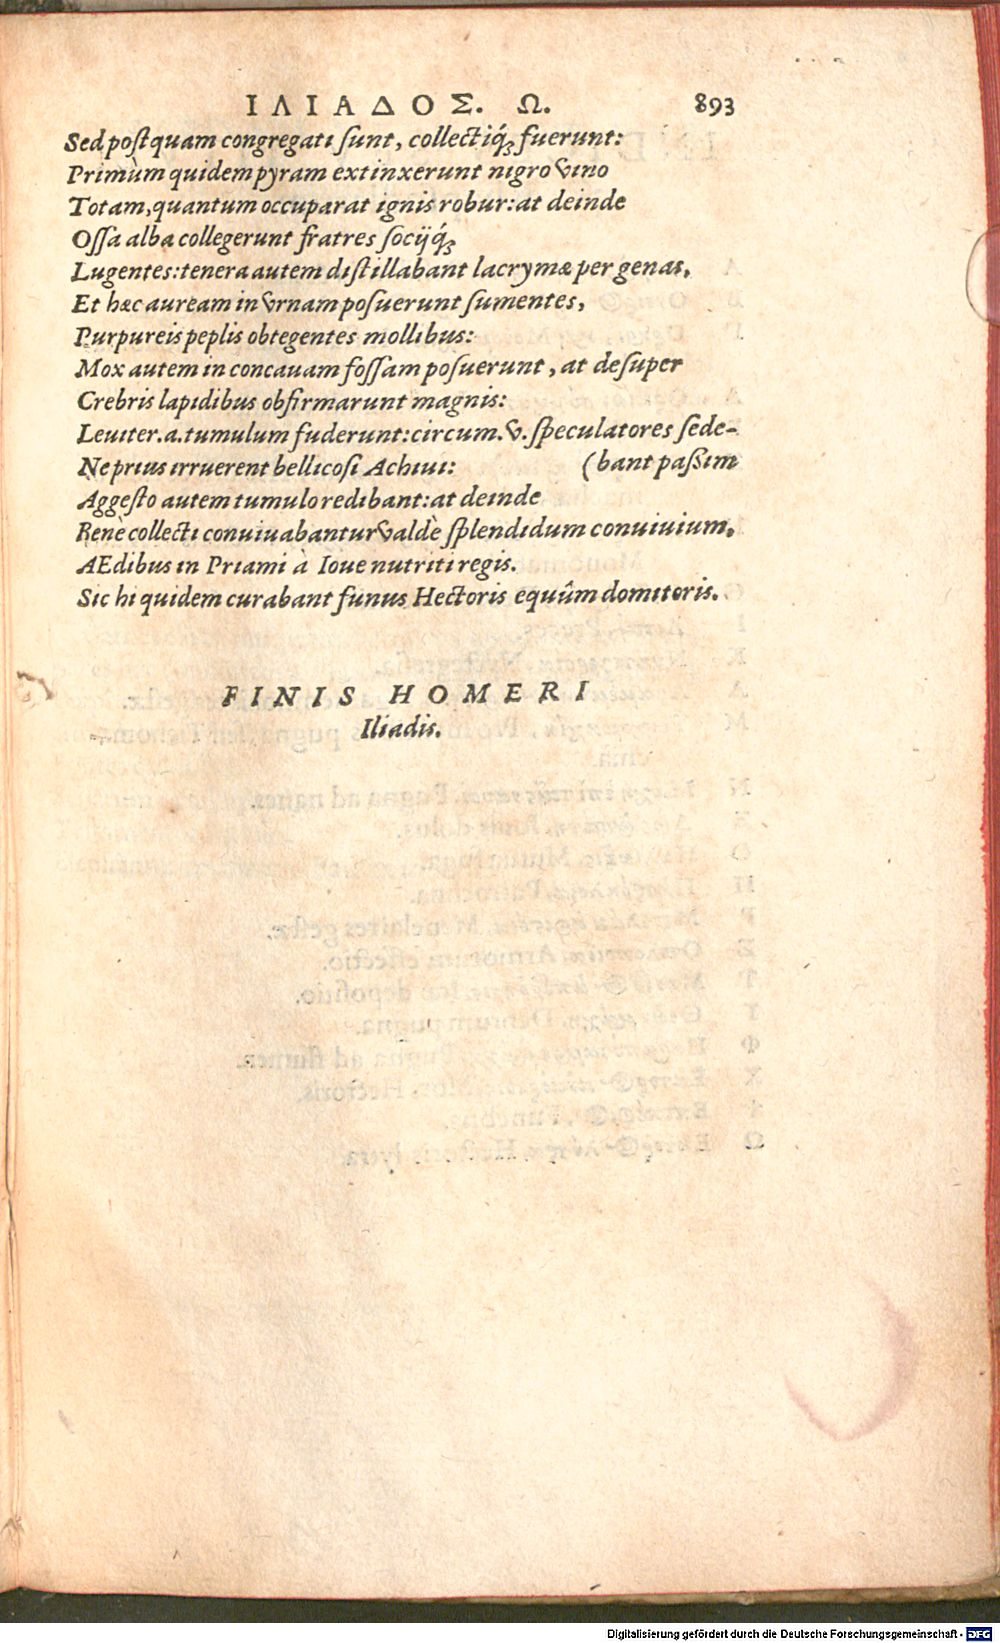 ΙΛΙΑΔΟΣ. Ω. 893
Sed postquam congregati sunt, collectiq́ꝫ fuerunt:
Primùm quidem pyram extinxerunt nigro vino
Totam, quantum occuparat ignis robur: at deinde
Ossa alba collegerunt fratres socijq́ꝫ
Lugentes: tenera autem distillabant lacrymæ per genas,
Et hæc auream in vrnam posuerunt sumentes,
Purpureis peplis obtegentes mollibus:
Mox autem in concauam fossam posuerunt, at desuper
Crebris lapidibus obfirmarunt magnis:
Leuiter.a.tumulum fuderunt: circum.v. speculatores sede-
Ne prius irruerent bellicosi Achiui: (bant passim
Aggesto autem tumulo redibant: at deinde
Benè collecti conuiuabantur valdè splendidum conuiuium,
AEdibus in Priami à Ioue nutriti regis.
Sic hi quidem curabant funus Hectoris equûm domitoris.
FINIS HOMERI
Iliadis.
Digitalisierung gefördert durch die Deutsche Forschungsgemeinschaft - DFG